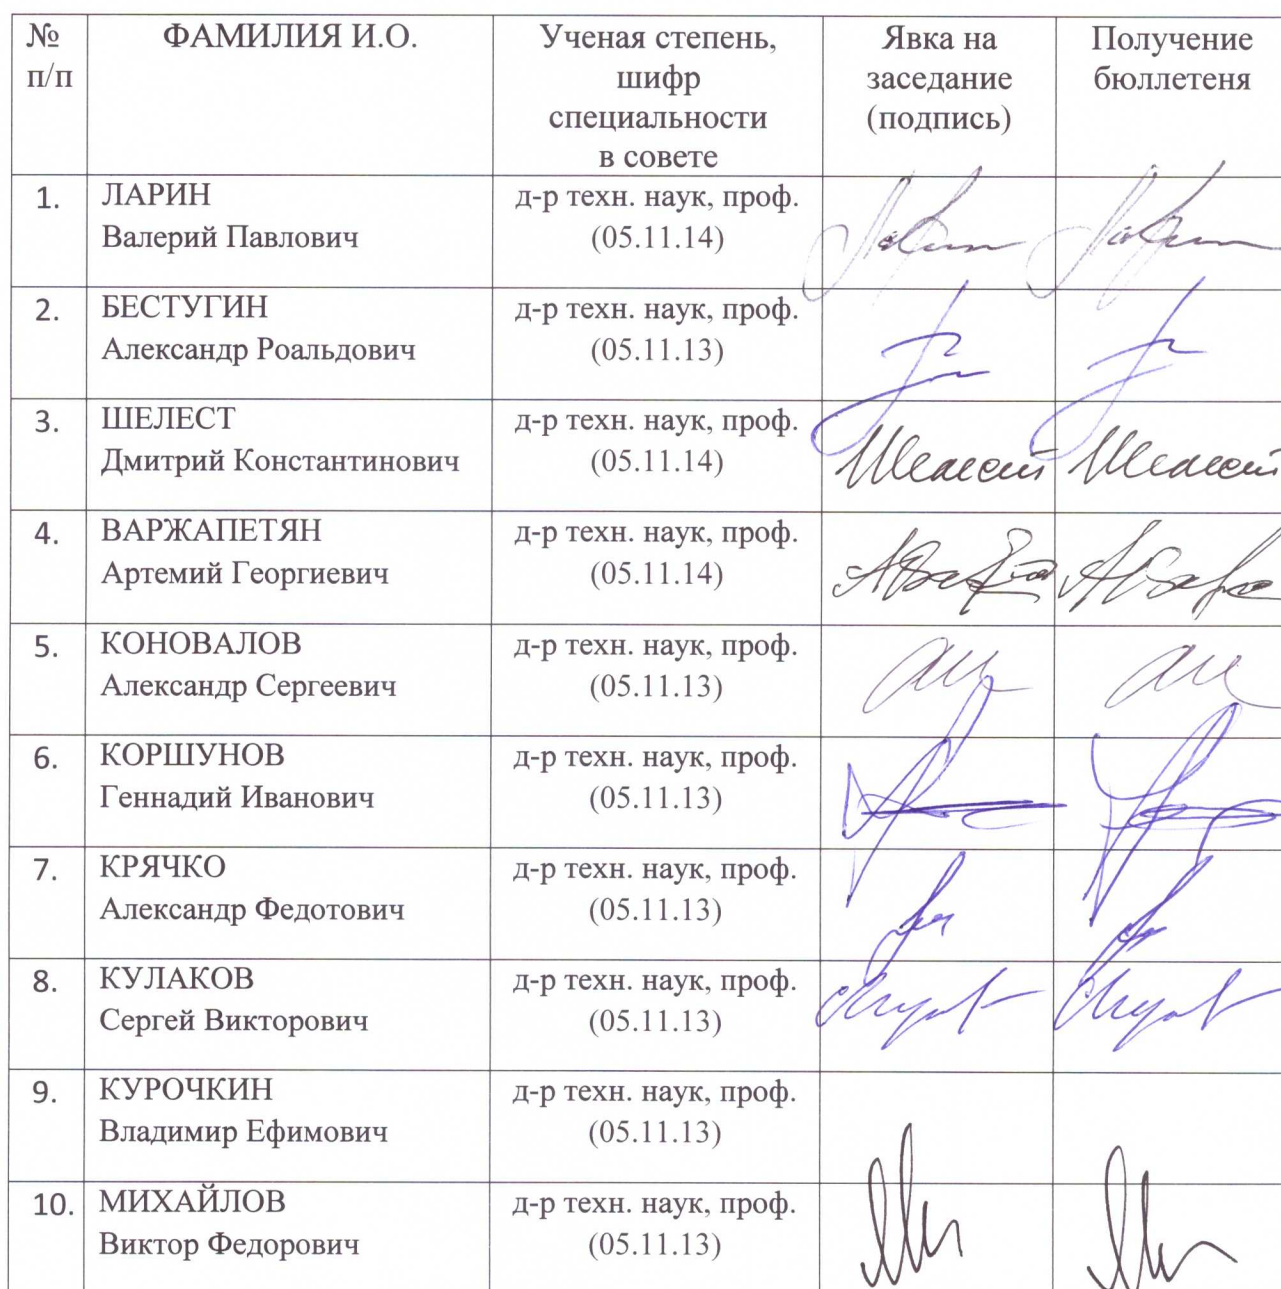 № п/п
ФАМИЛИЯ И.О.
Ученая степень,
шифр
специальности
в совете
Явка на
заседание
(подпись)
Получение
бюллетеня
1.
ЛАРИН
Валерий Павлович
д-р техн. наук, проф.
(05.11.14)
2.
БЕСТУГИН
Александр Роальдович
д-р техн. наук, проф.
(05.11.13)
3.
ШЕЛЕСТ
Дмитрий Константинович
д-р техн. наук, проф.
(05.11.14)
Шелест
Шелест
4.
ВАРЖАПЕТЯН
Артемий Георгиевич
д-р техн. наук, проф.
(05.11.14)
5.
КОНОВАЛОВ
Александр Сергеевич
д-р техн. наук, проф.
(05.11.13)
6.
КОРШУНОВ
Геннадий Иванович
д-р техн. наук, проф.
(05.11.13)
7.
КРЯЧКО
Александр Федотович
д-р техн. наук, проф.
(05.11.13)
8.
КУЛАКОВ
Сергей Викторович
д-р техн. наук, проф.
(05.11.13)
9.
КУРОЧКИН
Владимир Ефимович
д-р техн. наук, проф.
(05.11.13)
10.
МИХАЙЛОВ
Виктор Федорович
д-р техн. наук, проф.
(05.11.13)